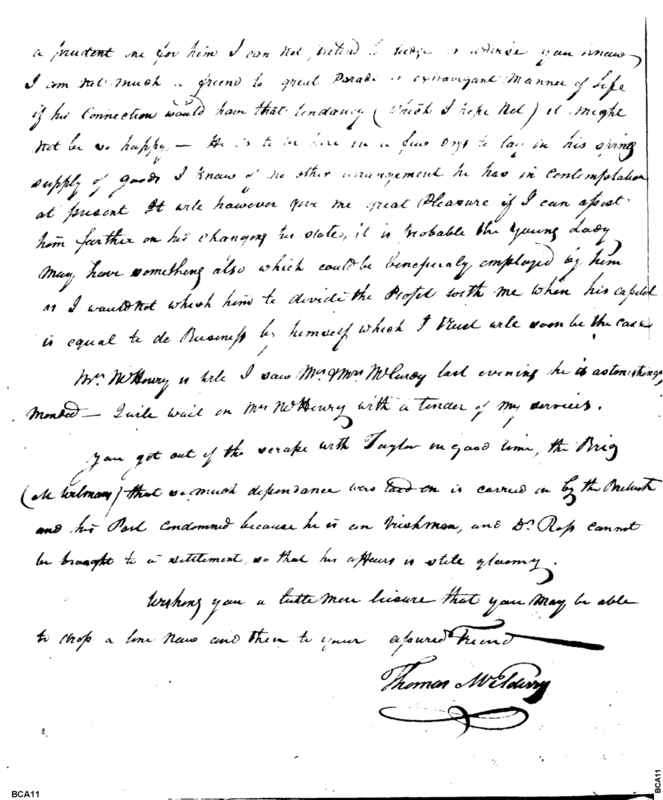 a prudent one for him I can not pretend to judge or advise you know
I am not much a friend to great Parade or extravegant Manner of Life
if his Connection would have that tendancy (which I hope Not) it might
Not be so happy — He is to be here in a few days to lay in his spring
supply of goods I know of no other arrangement he has in Contemplation
at present It will however give me great Pleasure if I can assist
him farther on his changing his state, it is Probable the Young Lady
May have something also which could be beneficially employed by him
as I would not which him to divide the Profit with me when his capital
is equal to do Business by himself which I trust will soon be the case
Mrs McHenry is well I saw Mr & Mrs McCurdy last evening he is astonishingly
mended — I will wait on Mrs McHenry with a tender of my services.
You got out of the scrape with Taylor in good time, the Brig
that so much dependance was laid on is carried in by the British
and his Part Condemned because he is an Irishman, and Dr. Ross cannot
be brought to a settlement, so that his affairs is still gloomy.
Wishing you a little more leisure that you may be able
to drop a line now and then to your assured Friend
Thomas McElderry
BCA11
BCA11